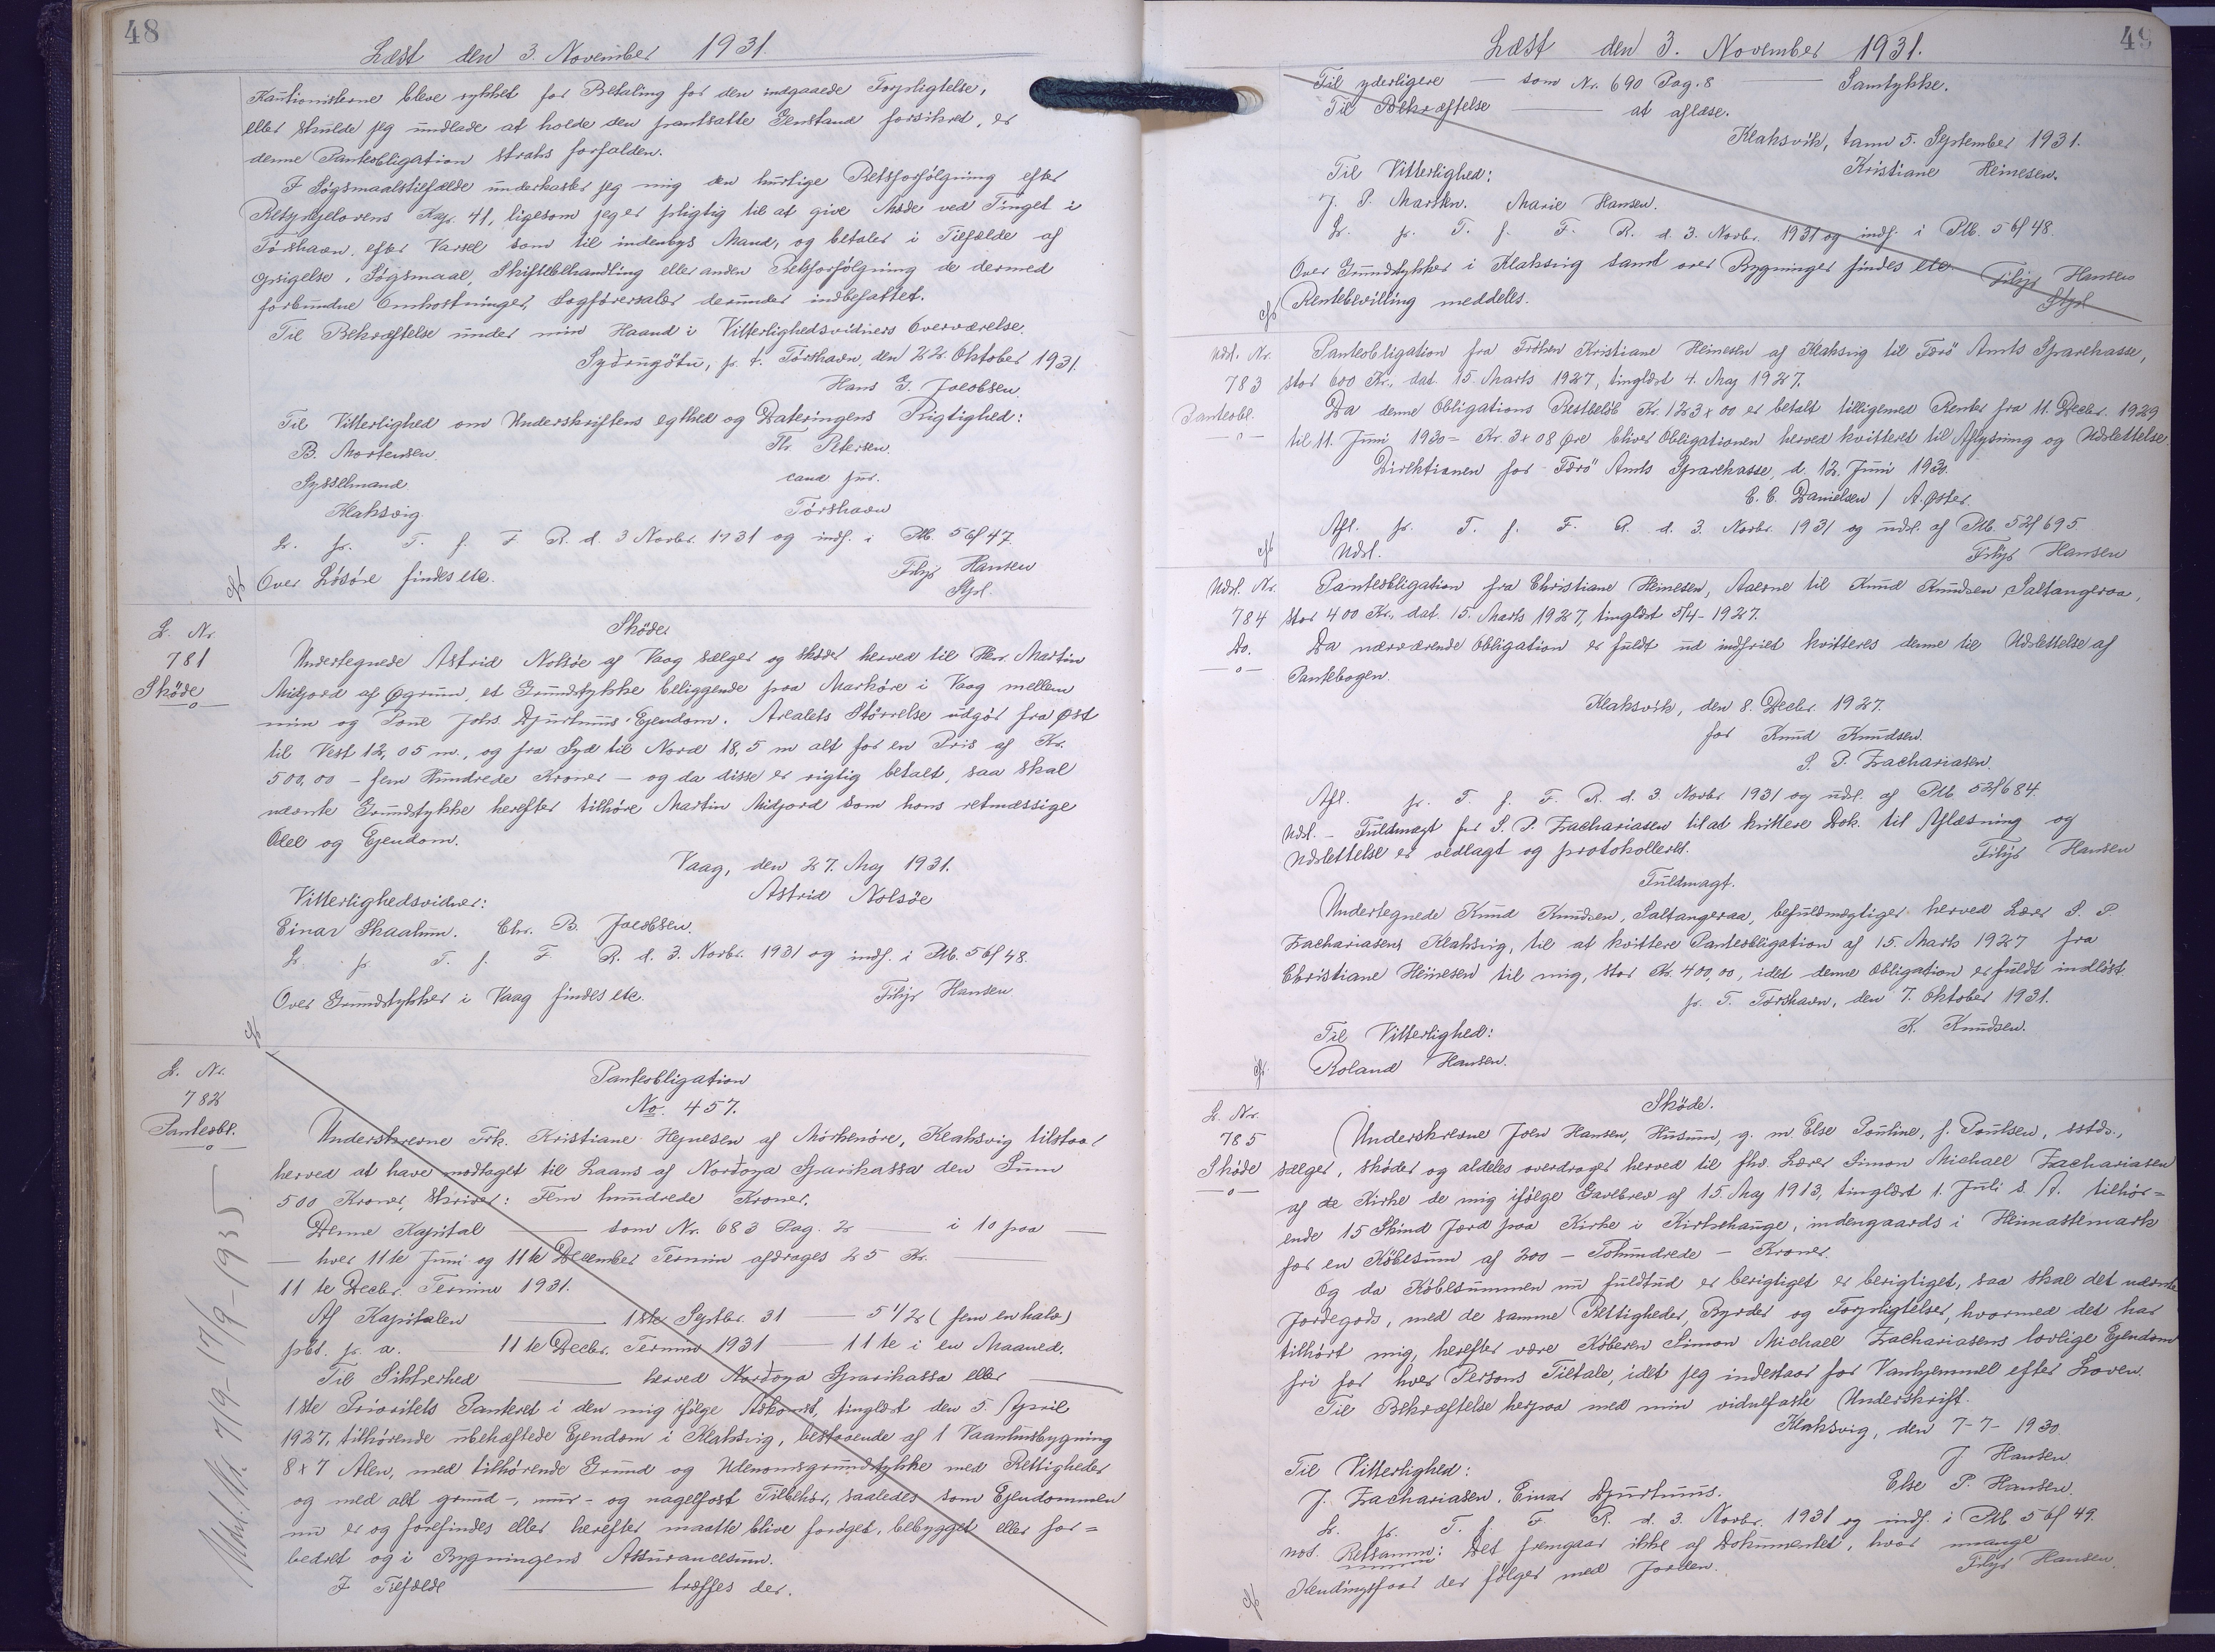 48
Læst den 3. November 1931.
Kautionisterne bleve rykket for Betaling for den indgaaede Forpligtelse,
eller skulde jeg undlade at holde den pantsatte Genstand forsikret, er
denne Panteobligation straks forfalden.
I Søgsmaalstilfælde underkaster jeg mig den hurtige Retsforfølgning efter
Retsplejelovens Kap. 41, ligesom jeg er pligtig til at give Møde ved Tinget i
Tórshavn efter Varsel som til indenbys Mand, og betaler i Tilfælde af
Opsigelse, Søgsmaal, Skiftebehandling eller anden Retsforfølgning de dermed
forbundne Omkostninger, Sagførersalær derunder indbefattet.
Til Bekræftelse under min Haand i Vitterlighedsvidners Overværelse.
Sydrugøtu, p. t. Tórshavn, den 22. Oktober 1931.
Hans G. Jacobsen.
Til Vitterlighed om Underskriftens Egthed og Dateringens Rigtighed:
B. Mortensen. Th. Petersen.
Sysselmand cand jur.
Klaksvig Tórshavn
L. p. T. f. F. R. d. 3 Novbr. 1931 og indf. i Ptb. 56f 47.
Over Løsøre findes etc. Filip Hansen
Stpl.
L. Nr.
781
Skøde
Skøde
Undertegnede Astrid Nolsøe af Vaag sælger og skøder herved til Herr. Martin
Midjord af Øgrum, et Grundstykke beliggende paa Markøre i Vaag mellem
min og Poul Johs. Djurhuus' Ejendom. Arealets Størrelse udgør fra Øst
til Vest 12,05 m., og fra Syd til Nord 18,5 m alt for en Pris af Kr.
500,00 - fem Hundrede Kroner - og da disse er rigtig betalt, saa skal
nævnte Grundstykke herefter tilhøre Martin Midjord som hans retmæssige
Odel og Ejendom.
Vaag, den 27. Maj 1931.
Vitterlighedsvidner: Astrid Nolsøe
Einar Skaalum. Chr. B. Jacobsen.
L. p. T. f. F. R. d. 3. Novbr. 1931 og indf. i Ptb. 56f 48.
Over Grundstykker i Vaag findes etc. Filip Hansen
L. Nr.
782
Panteobl.
Udsl. Nr. 7/9-17/9-1935
Panteobligation
No. 457.
Underskrevne Frk. Kristiane Hejnesen af Mörkenöre, Klaksvig tilstaar
herved at have modtaget til Laans af Nordoya Sparikassa den Sum
500 Kroner, skriver: Fem hundrede Kroner.
Denne Kapital ——— som Nr. 683 Pag. 2 ——— i 10 paa
— hver 11te Juni og 11te December Termin afdrages 25 Kr. ———
11te Decbr. Termin 1931.
Af Kapitalen ——— 1ste Septbr. 31 —— 5 1/2 (fem en halv)
pct. p. a. ——— 11te Decbr. Termin 1931 ——— 11te i en Maaned.
Til Sikkerhed ——— herved Nordoya Sparikassa eller ———
1ste Prioritets Panteret i den mig ifølge Adkomst, tinglæst den 5 April
1927, tilhørende ubehæftede Ejendom i Klaksvig, bestaaende af 1 Vaanhusbygning
8x7 Alen, med tilhørende Grund og Udenomsgrundstykke med Rettigheder
og med alt grund-, mur- og nagelfast Tilbehør, saaledes som Ejendommen
nu er og forefindes eller herefter maatte blive forøget, bebygget eller for=
bedret og i Bygningens Assurancesum.
I Tilfælde ——— træffes der.
49
Læst den 3. November 1931.
Til yderligere —— som Nr. 690 Pag. 8 ——— Samtykke.
Til Bekræftelse ——— at aflæse.
Klaksvík, tann 5. September 1931.
Til Vitterlighed: Kristiane Heinesen.
J. P. Marsten. Marie Hansen.
L. p. T. f. F. R. d. 3. Novbr. 1931 og indf. i Ptb. 56f 48.
Over Grundstykker i Klaksvig samt over Bygninger findes etc. Filip Hansen
Rentebevilling meddeles. Stpl
Udsl. Nr.
783
Panteobl.
Panteobligation fra Frøken Kristiane Heinesen af Klaksvig til Færö Amts Sparekasse,
stor 600 Kr., dat. 15. Marts 1927, tinglæst 4. Maj 1927.
Da denne Obligations Restbeløb Kr. 123x00 er betalt tilligemed Renter fra 11. Decbr. 1929
til 11. Juni 1930 = Kr. 3x08 Øre bliver Obligationen herved kvitteret til Aflysning og Udslettelse.
Direktionen for Færö Amts Sparekasse, d. 12. Juni 1930.
C. C. Danielsen / A. Øster.
Afl. p. T. f. F. R. d. 3. Novbr. 1931 og udsl. af Ptb. 52f 695
Udsl. Filip Hansen
Udsl. Nr.
784
Do.
Panteobligation fra Christiane Heinesen, Aaerne til Knud Knudsen Saltangeraa,
stor 400 Kr., dat. 15. Marts 1927, tinglæst 5/4-1927.
Da nærværende Obligation er fuldt ud indfriet kvitteres denne til Udslettelse af
Pantebogen.
Klaksvik, den 8. Decbr. 1927.
for Knud Knudsen.
S. P. Zachariasen.
Afl. p. T. f. F. R. d. 3. Novbr. 1931 og udsl. af Ptb. 52f 684.
Udsl. - Fuldmagt for S. P. Zachariasen til at kvittere Dok. til Aflæsning og
Udslettelse er vedlagt og protokolleret. Filip Hansen
Fuldmagt.
Undertegnede Knud Knudsen, Saltangeraa, befuldmægtiger herved Lærer S. P.
Zachariasens Klaksvig, til at kvittere Panteobligation af 15. Marts 1927 fra
Christiane Heinesen til mig, stor Kr. 400,00, idet denne Obligation er fuldt indløst.
p. T. Torshavn, den 7. Oktober 1931.
Til Vitterlighed: K. Knudsen.
Roland Hansen.
L. Nr.
785
Skøde
Skøde.
Underskrevne Joen Hansen, Husum, g. m. Else Pouline, f. Poulsen, sstds.,
sælger, skøder og aldeles overdrager herved til fhv. Lærer Simon Michael Zachariasen
af de Kirke de mig ifølge Gavebrev af 15. Maj 1913, tinglæst 1. Juli s. A. tilhør=
ende 15 Skind Jord paa Kirke i Kirkehauge, indengaards i Heimastemark
for en Købesum af 200 - Tohundrede - Kroner.
Og da Købesummen nu fuldtud er berigtiget er berigtiget, saa skal det nævnte
Jordegods, med de samme Rettigheder, Byrder og Forpligtelser, hvormed det har
tilhört mig, herefter være Køberen Simon Michael Zachariasens lovlige Ejendom
fri for hver Persons Tiltale, idet jeg indestaar for Vanhjemmel efter Loven.
Til Bekræftelse herpaa med min vidnefaste Underskrift.
Klaksvig, den 7-7-1930.
J. Hansen.
Til Vitterlighed: Else P. Hansen.
J. Zachariasen. Einar Djurhuus.
L. p. T. f. F. R. d. 3. Novbr. 1931 og indf. i Ptb 56f 49.
not. Retsanm: Det fremgaar ikke af Dokumentet, hvor mange
Kendingsfaar der følger med Jorden. Filip Hansen.